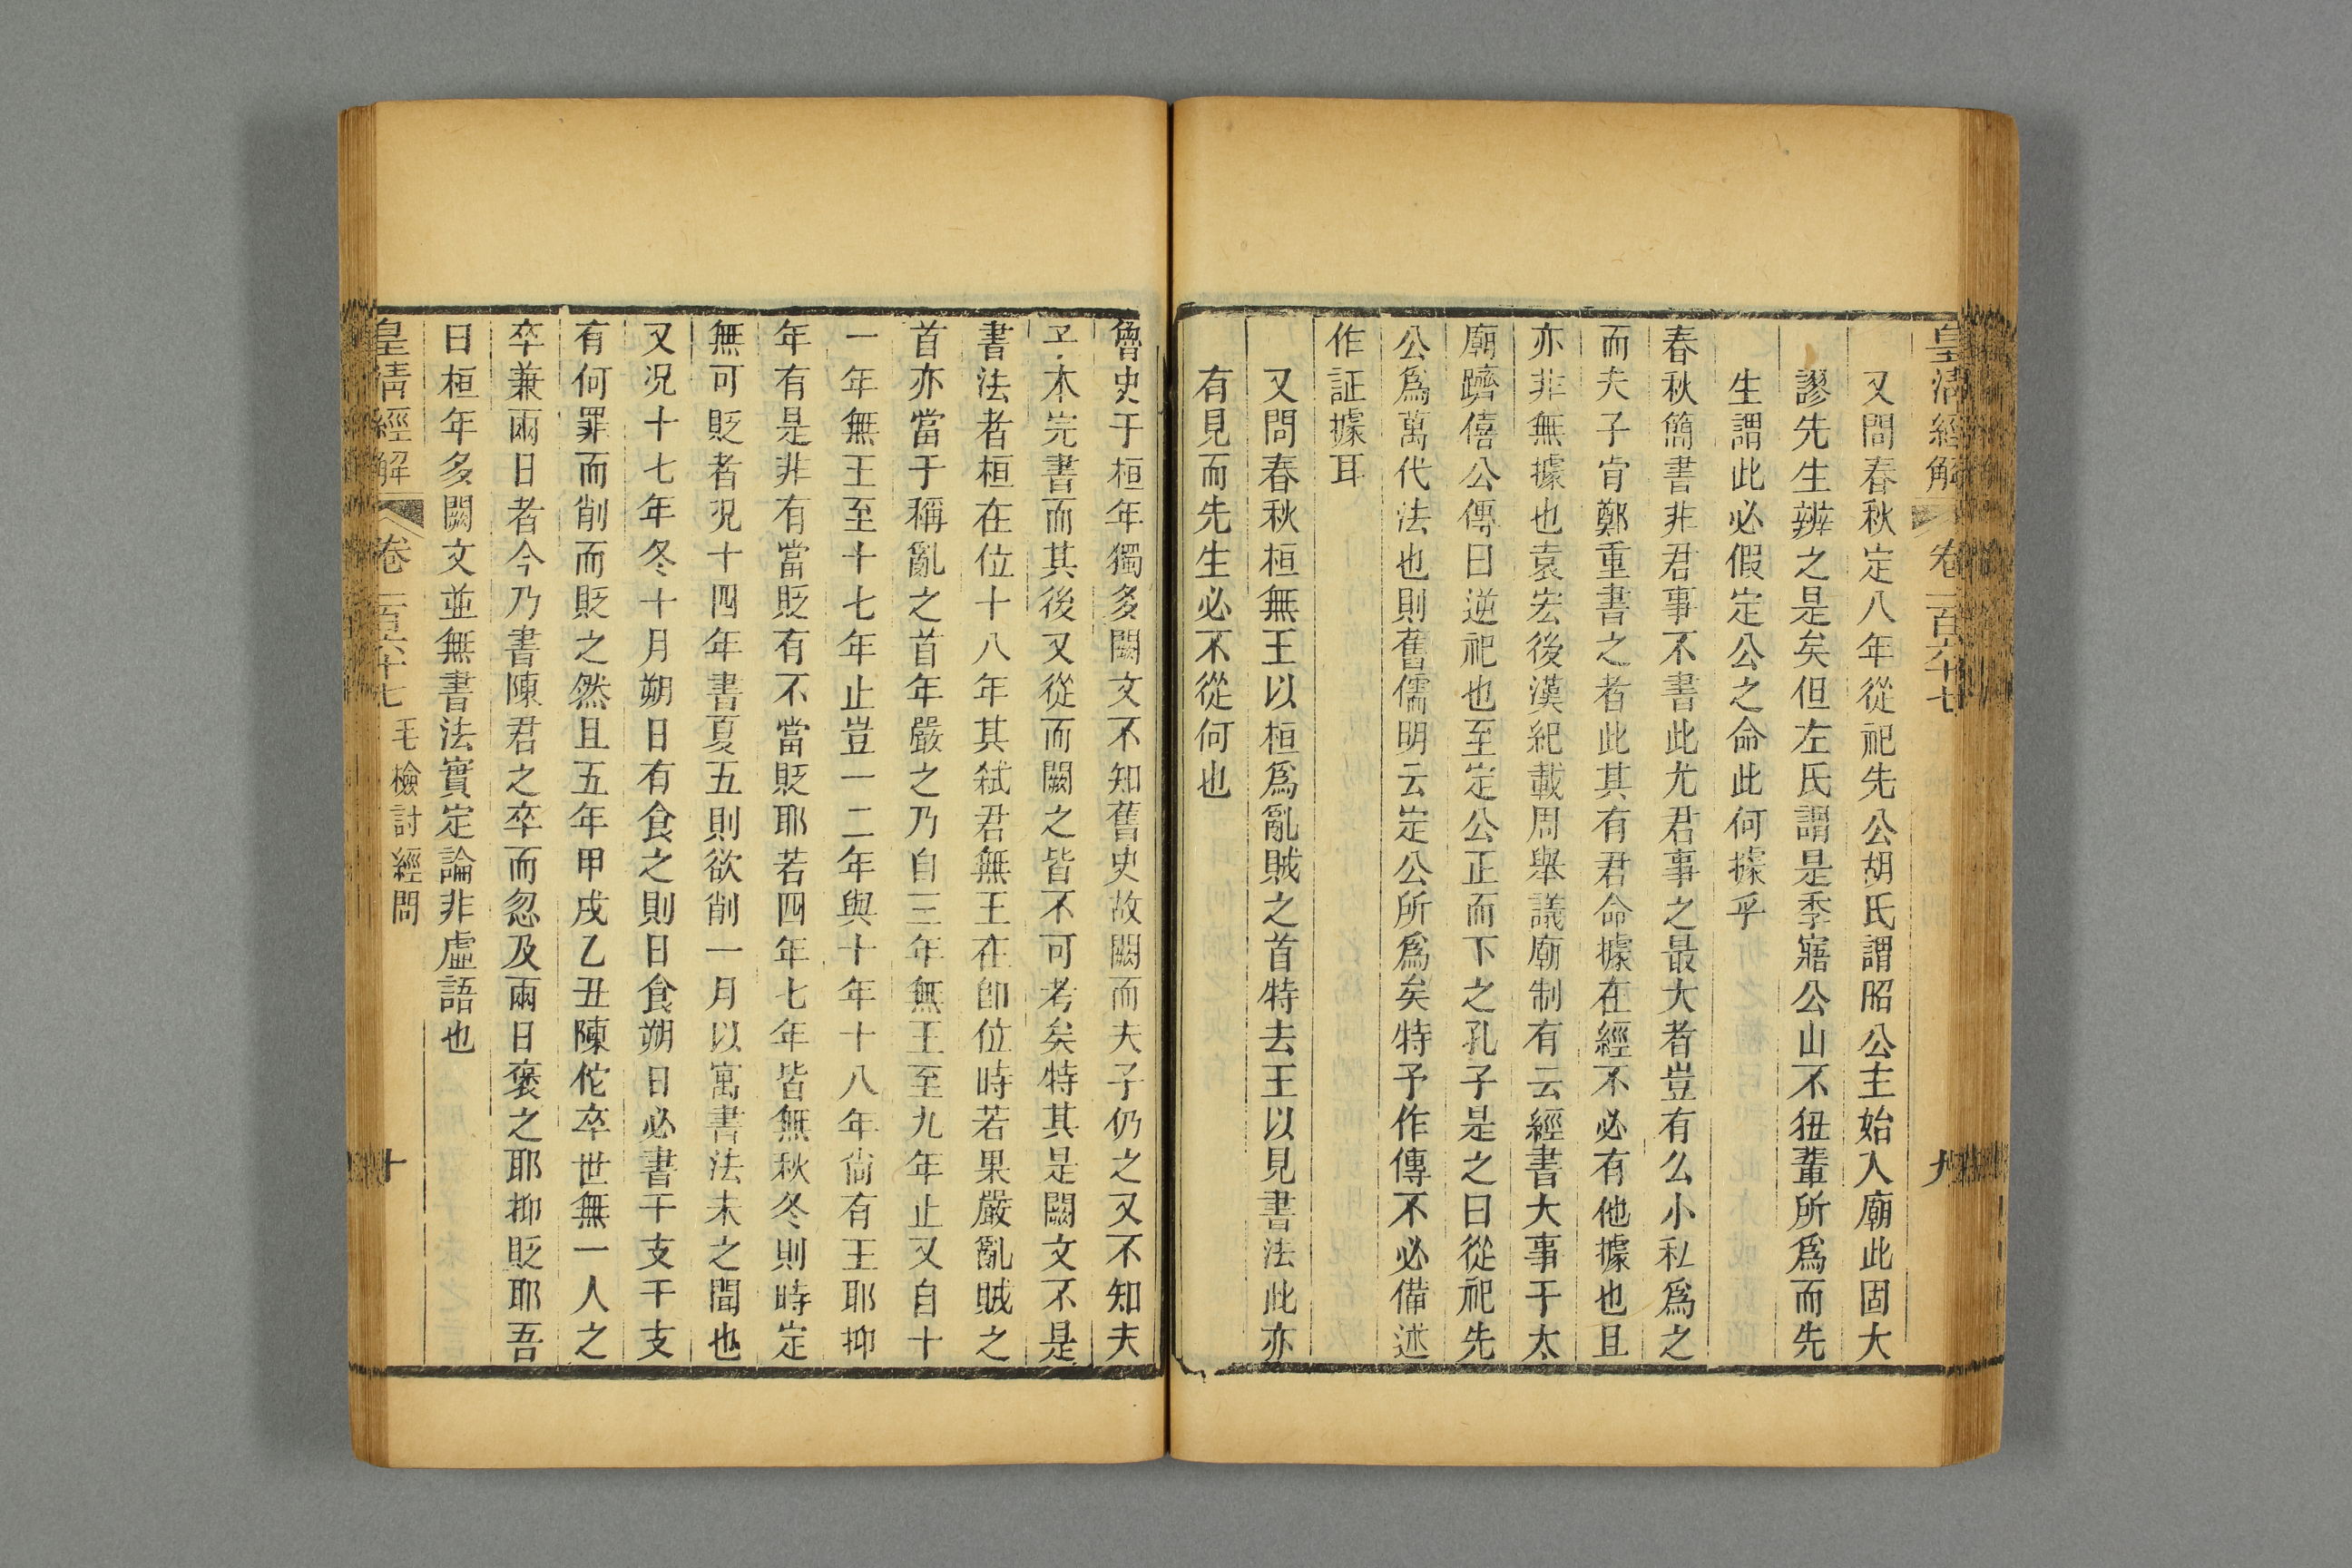 皇清經解 卷一百六十七 九
又問春秋定八年從祀先公胡氏謂昭公主始入廟此固大
謬先生辨之是矣但左氏謂是季寤公山不狃輩所爲而先
生謂此必假定公之命此何據乎
春秋簡書非君事不書此尤君事之最大者豈有么小私爲之
而夫子肯鄭重書之者此其有君命據在經不必有他據也且
亦非無據也袁宏後漢紀載周舉議廟制有云經書大事于太
廟躋僖公傳曰逆祀也至定公正而下之孔子是之曰從祀先
公爲萬代法也則舊儒明云定公所爲矣特予作傳不必備述
作証據耳
又問春秋桓無王以桓爲亂賊之首特去王以見書法此亦
有見而先生必不從何也
魯史于桓年獨多闕文不知舊史故闕而夫子仍之又不知夫
子本完書而其後又從而闕之皆不可考矣特其是闕文不是
書法者桓在位十八年其弒君無王在卽位時若果嚴亂賊之
首亦當于稱亂之首年嚴之乃自三年無王至九年止又自十
一年無王至十七年止豈一二年與十年十八年尙有王耶抑
年有是非有當貶有不當貶耶若四年七年皆無秋冬則時定
無可貶者況十四年書夏五則欲削一月以寓書法未之聞也
又况十七年冬十月朔日有食之則日食朔日必書干支干支
有何罪而削而貶之然且五年甲戌乙丑陳佗卒世無一人之
卒兼兩日者今乃書陳君之卒而忽及兩日褒之耶抑貶耶吾
曰桓年多闕文並無書法實定論非虛語也
皇清經解 卷一百六十七 毛檢討經問 十